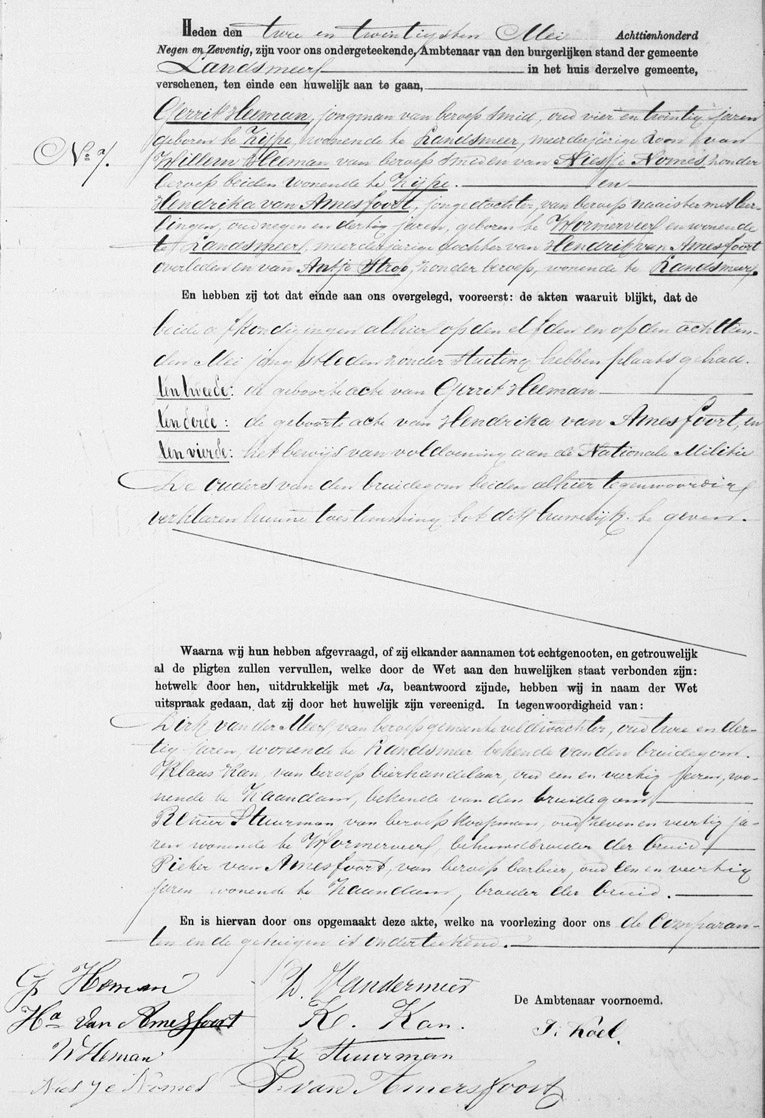 Heden den twee en twintigsten Mei Achttienhonderd
Negen en Zeventig, zijn voor ons ondergeteekende, Ambtenaar van den burgerlijken stand der gemeente
Landsmeer in het huis derzelve gemeente,
verschenen, ten einde een huwelijk aan te gaan,
Gerrit Heeman, jongman van beroep smid, oud vier en twintig jaren
geboren te Zijpe, wonende te Landsmeer, meerderjarige zoon van
No 7.
Willem Heeman van beroep smid en van Niesje Nomes zonder
beroep beiden wonende te Zijpe. en
Hendrika van Amesfoort, jonge dochter, van beroep naaister met leer-
lingen, oud negen en dertig jaren, geboren te Wormerveer en wonende
te Landsmeer, meerderjarige dochter van Hendrik van Amesfoort
overleden en van Antje Stroo, zonder beroep, wonende te Landsmeer.
En hebben zij tot dat einde aan ons overgelegd, vooreerst: de akten waaruit blijkt, dat de
beide afkondigingen alhier op den elfden en op den achttien-
den Mei jongstleden zonder stuiting hebben plaats gehad.
ten tweede: de geboorte acte van Gerrit Heeman
ten derde: de geboorte acte van Hendrika van Amesfoort, en
ten vierde: het bewijs van voldoening aan de Nationale Militie
De ouders van den bruidegom beiden alhier tegenwoordig
verklaren hunne toestemming tot dit huwelijk te geven.
Waarna wij hun hebben afgevraagd, of zij elkander aannamen tot echtgenooten, en getrouwelijk
al de pligten zullen vervullen, welke door de Wet aan den huwelijken staat verbonden zijn:
hetwelk door hen, uitdrukkelijk met Ja, beantwoord zijnde, hebben wij in naam der Wet
uitspraak gedaan, dat zij door het huwelijk zijn vereenigd. In tegenwoordigheid van:
Dirk van der Meer, van beroep gemeente veldwachter, oud twee en der-
tig jaren, wonende te Landsmeer bekende van den bruidegom.
Klaas Kan, van beroep bierhandelaar, oud een en veertig jaren, wo-
nende te Zaandam, bekende van den bruidegom
Stuurman van beroep koopman, oud zeven en veertig ja-
ren wonende te Wormerveer, behuwdbroeder der bruid
Pieter van Amesfoort, van beroep barbier, oud een en veertig
jaren wonende te Zaandam, broeder der bruid.
En is hiervan door ons opgemaakt deze akte, welke na voorlezing door ons de Comparan-
ten en de getuigen is onderteekend.
G Heman D. Vandermeer
De Ambtenaar voornoemd.
Ha van Amesfoort K. Kan. J. Köel.
W Heman R Stuurman
Niesje Nomes P. van Amersfoort